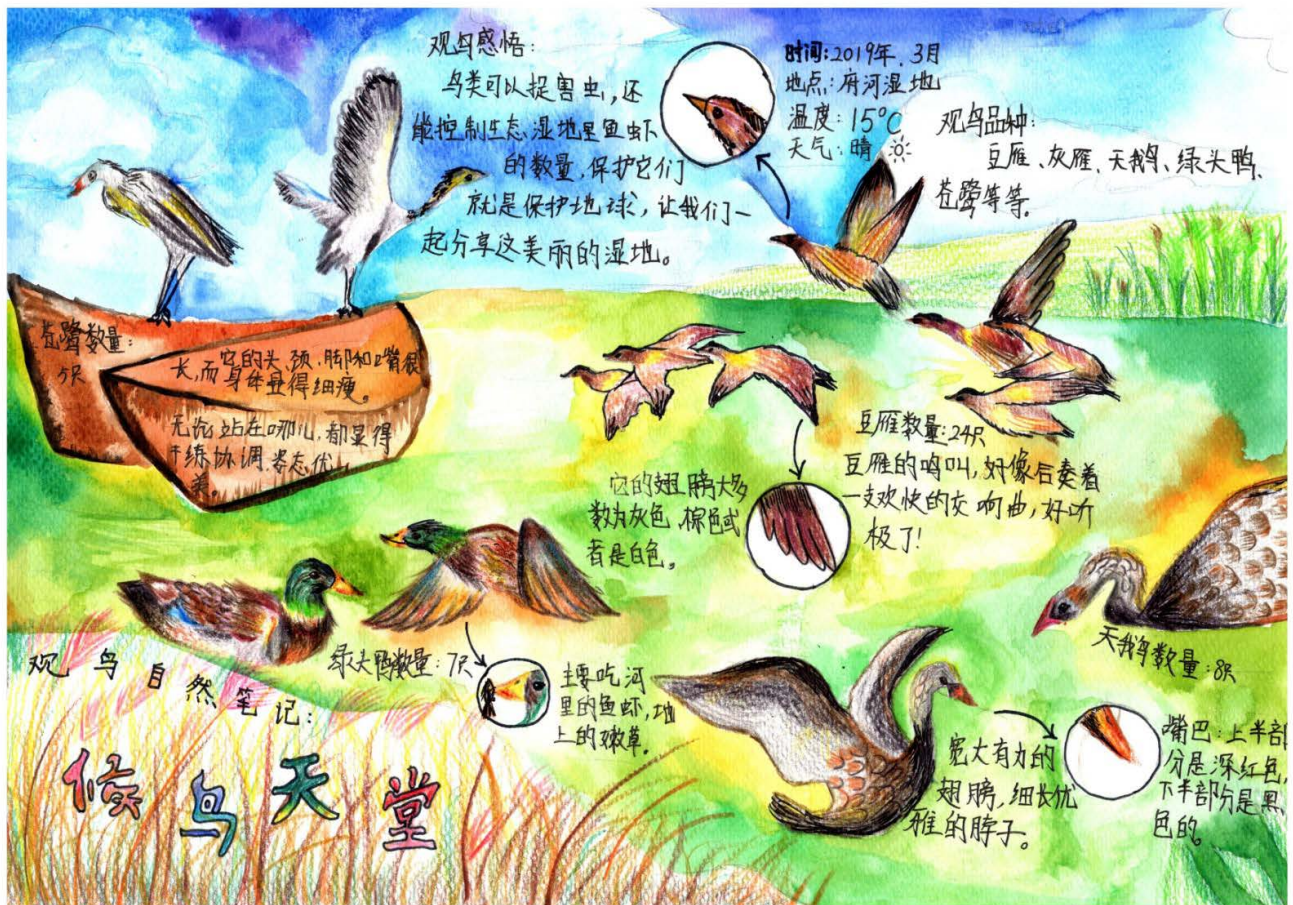 观鸟感悟:
鸟类可以捉害虫,还
能控制生态湿地里鱼虾
的数量,保护它们
就是保护地球,让我们一
起分享这美丽的湿地。
时间:2019年.3月
地点:府河湿地
温度:15°C
天气:晴
观鸟品种:
豆雁、灰雁、天鹅、绿头鸭、
苍鹭等等.
苍鹭数量:
5只
它的头、颈、脚和嘴很
长,而身体显得细瘦。
无论站在哪儿,都显得
干练协调.姿态优
美。
豆雁数量:24只
豆雁的鸣叫,好像合奏着
一支欢快的交响曲,好听
极了!
它的翅膀大多
数为灰色、棕色或
者是白色。
绿头鸭数量:7只
主要吃河
里的鱼虾,地
上的嫩草.
天鹅数量:8只
宽大有力的
翅膀,细长优
雅的脖子。
嘴巴:上半部
分是深红色,
下半部分是黑
色的。
观鸟自然笔记:
候鸟天堂